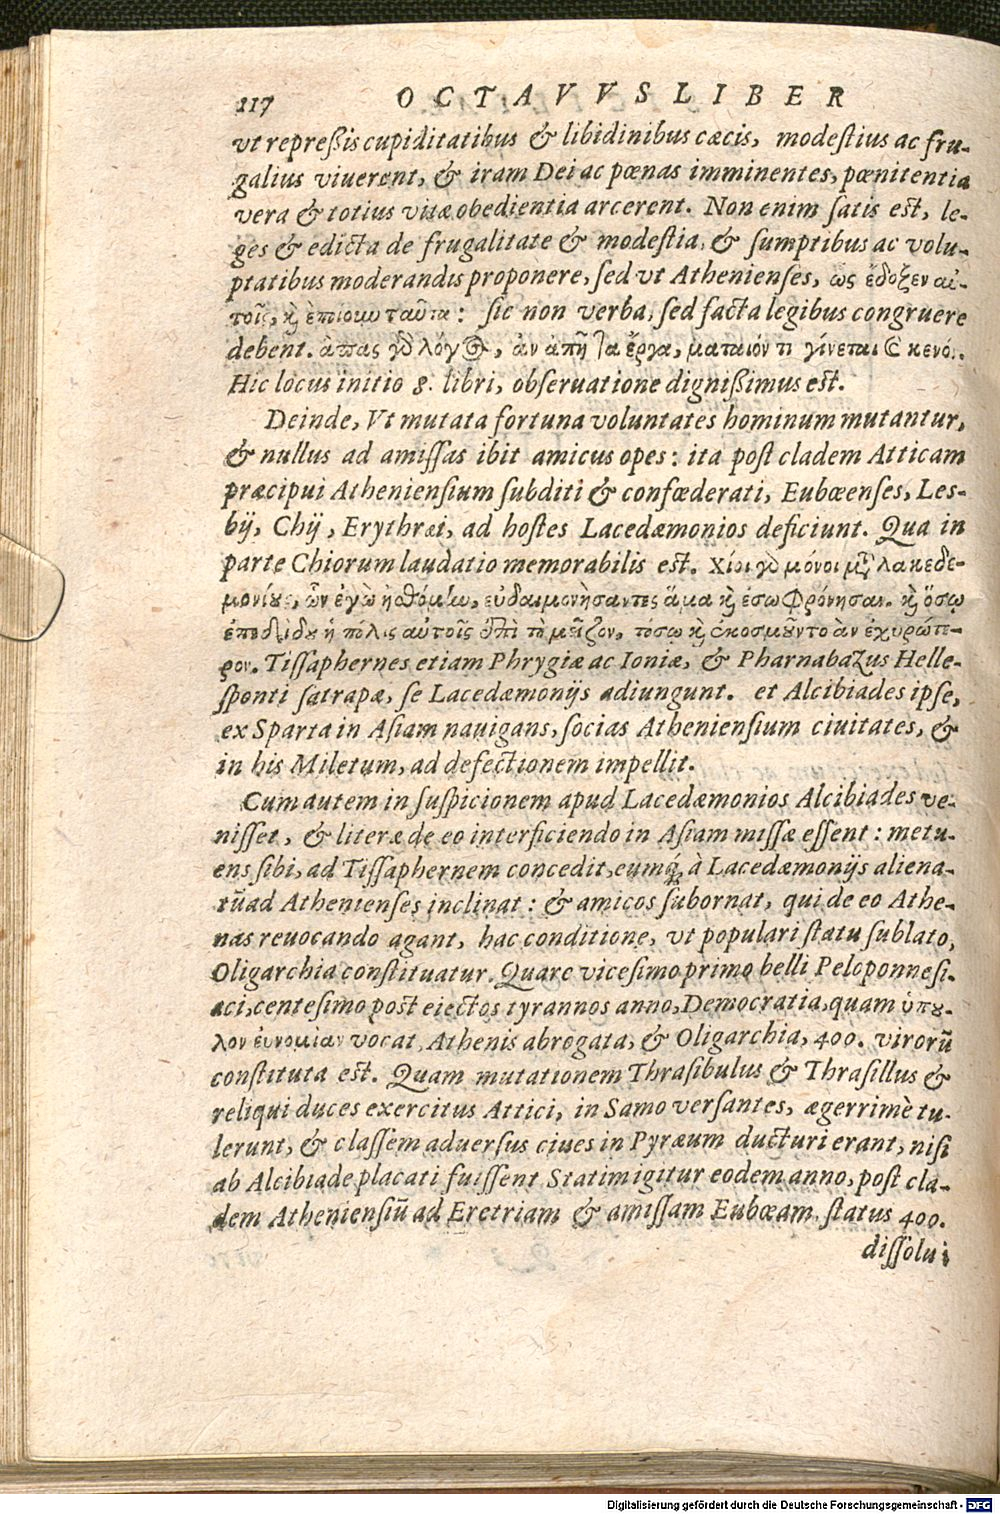 117 OCTAVVS LIBER
vt repreßis cupiditatibus & libidinibus cæcis, modeſtius ac fru-
galius viuerent, & iram Dei ac pœnas imminentes, pœnitentia
vera & totius vitæ obedientia arcerent. Non enim ſatis eſt, le-
ges & edicta de frugalitate & modeſtia, & ſumptibus ac volu-
ptatibus moderandis proponere, ſed vt Athenienſes, ὡς ἔδοξεν αὐ-
τοῖς, ϗ ἐπίουν ταῦτα: ſic non verba, ſed facta legibus congruere
debent. ἅπας γὸ λόγος, ἂν ἀπῇ τα ἔργα, ματαιόν τι γίνεται ϗ κενόν.
Hic locus initio 8. libri, obſeruatione digniſsimus eſt.
Deinde, Vt mutata fortuna voluntates hominum mutantur,
& nullus ad amiſſas ibit amicus opes: ita poſt cladem Atticam
præcipui Athenienſium ſubditi & confœderati, Eubœenſes, Les-
bij, Chij, Erythræi, ad hoſtes Lacedæmonios deficiunt. Qua in
parte Chiorum laudatio memorabilis eſt. Χῖοι γὸ μόνοι μετὰ λακεδε-
μονίους, ὧν ἐγὼ ἠσθόμην, εὐδαιμονήσαντες ἅμα ϗ ἐσωφρόνησαν. ϗ ὅσῳ
ἐπεδίδου ἡ πόλις αὐτοῖς ἐπὶ τὸ μεῖζον, τόσῳ ϗ ἐκοσμοῦντο ἀν ἐχυρώτε-
ρον. Tiſſaphernes etiam Phrygiæ ac Ioniæ, & Pharnabazus Helle-
ſponti ſatrapæ, ſe Lacedæmonijs adiungunt. et Alcibiades ipſe,
ex Sparta in Aſiam nauigans, ſocias Athenienſium ciuitates, &
in his Miletum, ad defectionem impellit.
Cum autem in ſuſpicionem apud Lacedæmonios Alcibiades ve-
niſſet, & literæ de eo interficiendo in Aſiam miſſæ eſſent: metu-
ens ſibi, ad Tiſſaphernem concedit, eumq́ à Lacedæmonijs aliena-
tũ ad Athenienſes inclinat: & amicos ſubornat, qui de eo Athe-
nas reuocando agant, hac conditione, vt populari ſtatu ſublato,
Oligarchia conſtituatur. Quare viceſimo primo belli Peloponneſi-
aci, centeſimo poſt eiectos tyrannos anno, Democratia, quam ὑπου-
λον ἐυνομίαν vocat, Athenis abrogata, & Oligarchia, 400. virorũ
conſtituta eſt. Quam mutationem Thraſibulus & Thraſillus &
reliqui duces exercitus Attici, in Samo verſantes, ægerrimè tu-
lerunt, & claſſem aduerſus ciues in Pyræum ducturi erant, niſi
ab Alcibiade placati fuiſſent Statim igitur eodem anno, poſt cla-
dem Athenienſiũ ad Eretriam & amiſſam Eubœam, ſtatus 400.
diſſolui
Digitalisierung gefördert durch die Deutsche Forschungsgemeinschaft - DFG